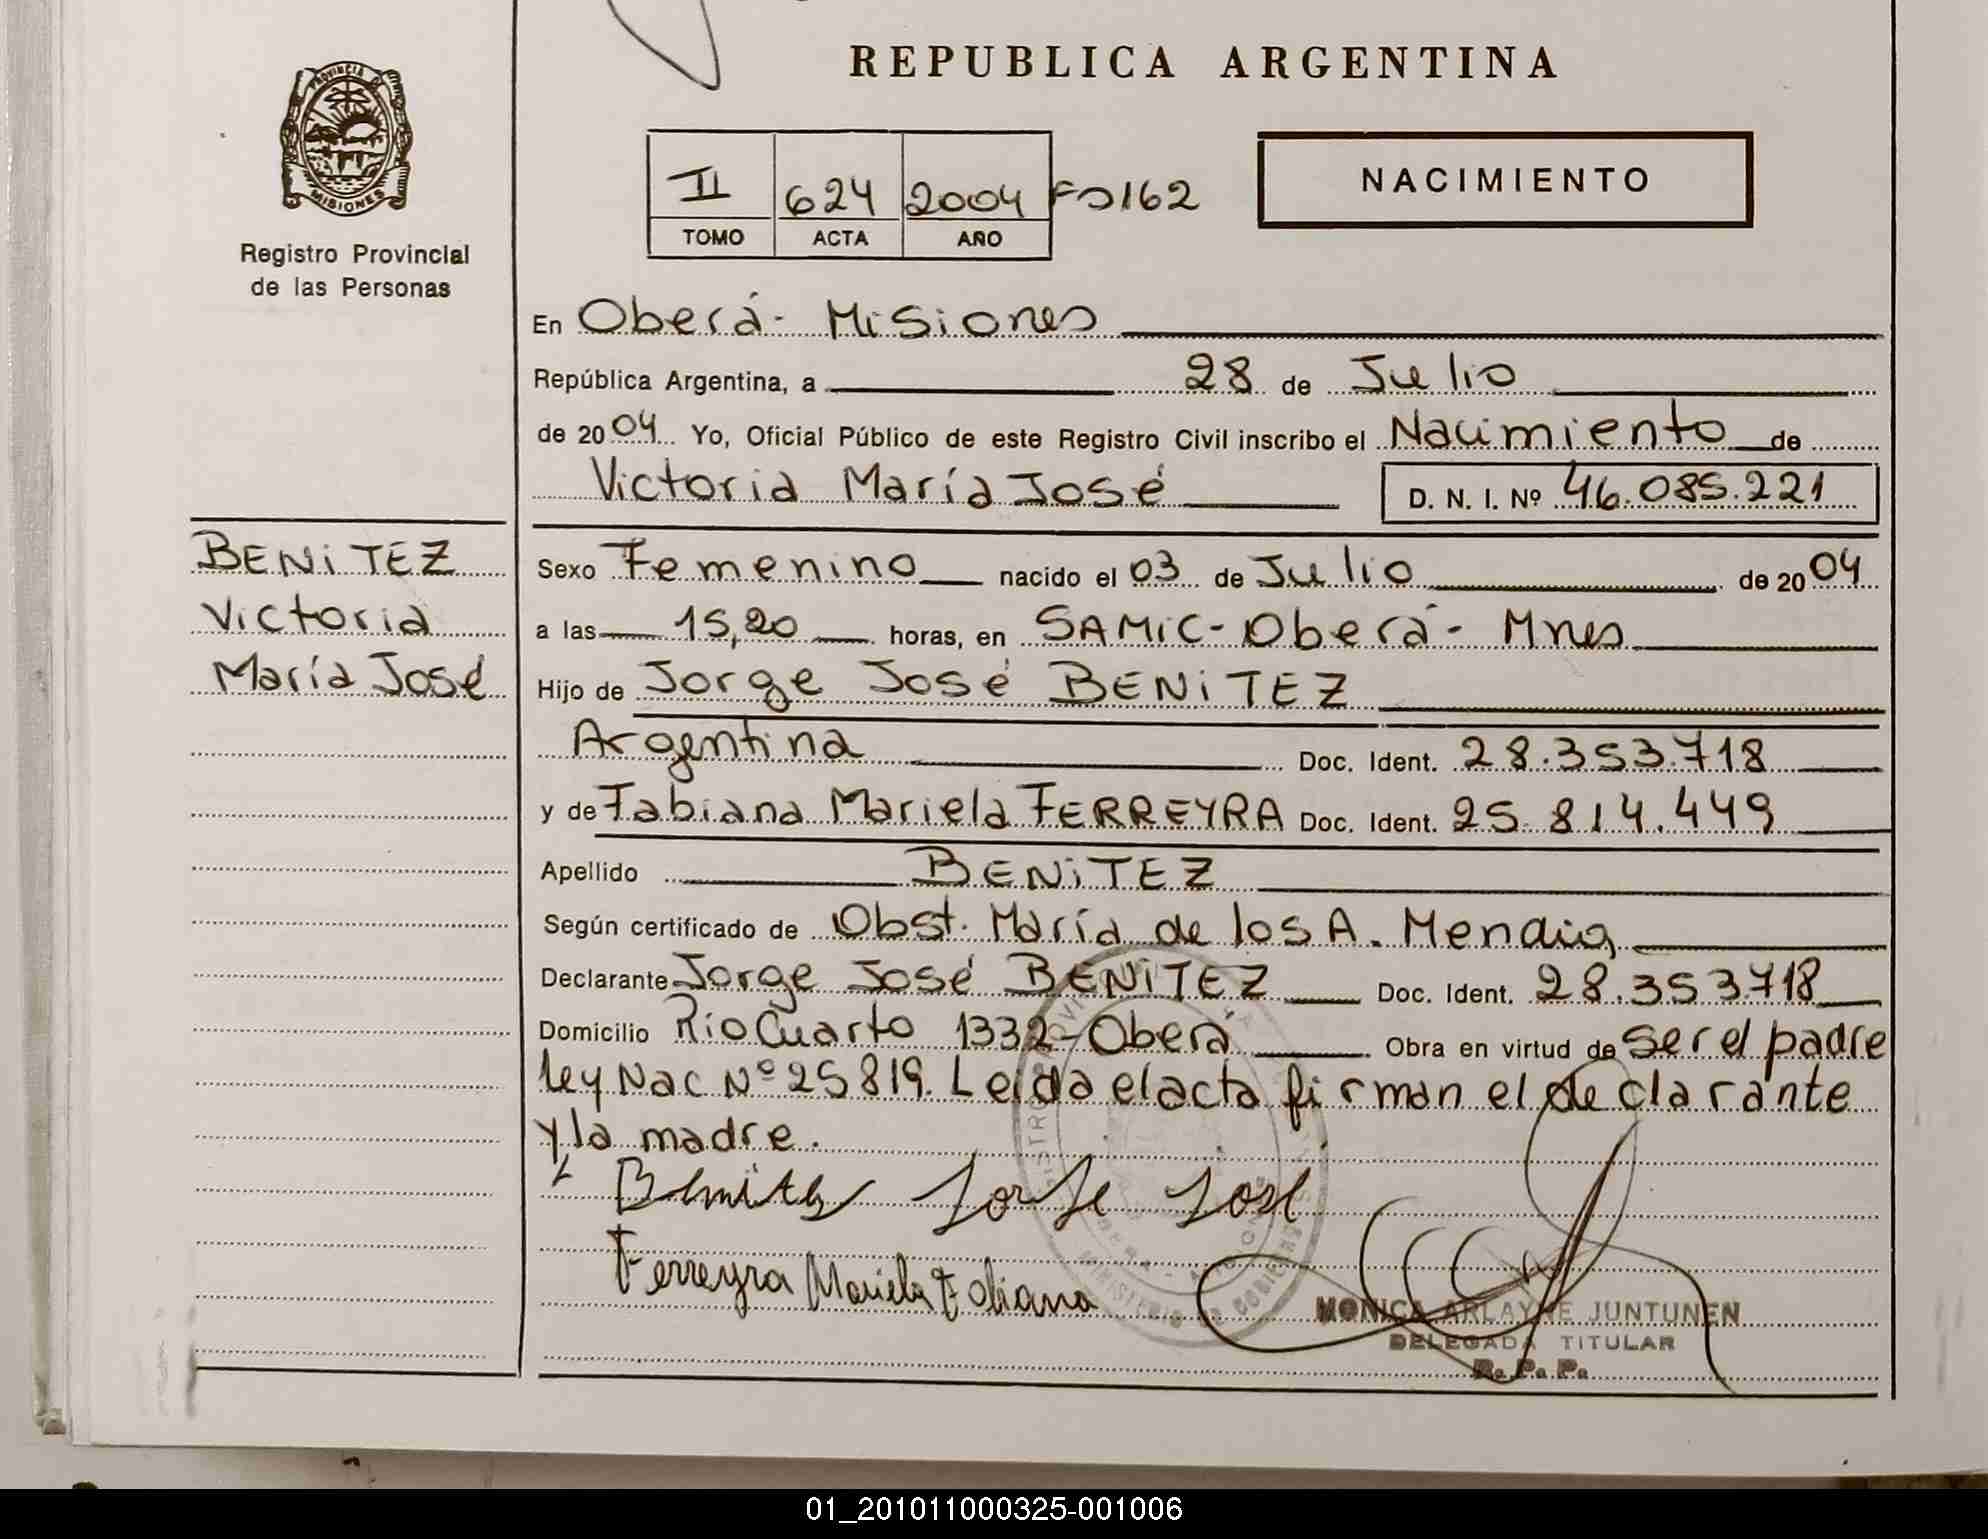 REPUBLICA ARGENTINA
PROVINCIA DE
MISIONES
Registro Provincial
de las Personas
II 624 2004 Fº162
TOMO ACTA AÑO
NACIMIENTO
En Oberá - Misiones
República Argentina, a 28 de Julio
de 2004 Yo, Oficial Público de este Registro Civil inscribo el Nacimiento de
Victoria María José D. N. I. Nº 46.085.221
BENiTEZ
Victoria
María José
Sexo Femenino nacido el 03 de Julio de 2004
a las 15,20 horas, en SAMiC - Oberá - Mnes
Hijo de Jorge José BENiTEZ
Argentina Doc. Ident. 28.353.718
y de Fabiana Mariela FERREYRA Doc. Ident. 25.814.449
Apellido BENiTEZ
Según certificado de Obst. María de los A.
Declarante Jorge José BENiTEZ Doc. Ident. 28.353.718
Domicilio Río Cuarto 1332 - Oberá Obra en virtud de ser el padre
ley Nac Nº 25819. Leida el acta firman el declarante
y la madre.
Benitez Jorge José
Ferreyra Mariela Fabiana
MONICA ARLAYNE JUNTUNEN
DELEGADA TITULAR
R. P. P.
01_201011000325-001006